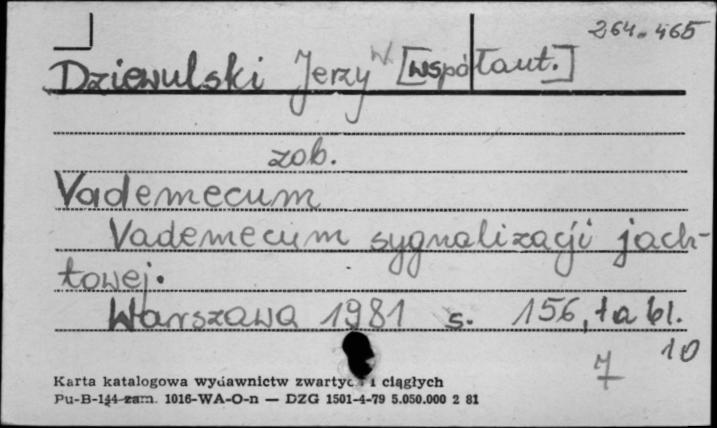 264.465
Dziewulski Jerzy W. [współaut.]
zob.
Vademecum
Vademecum sygnalizacji jach-
towej.
Warszawa 1981 s. 156, tabl.
10
7
Karta katalogowa wydawnictw zwartych i ciągłych
Pu-B-144 zam. 1016-WA-O-n — DZG 1501-4-79 5.050.000 2 81